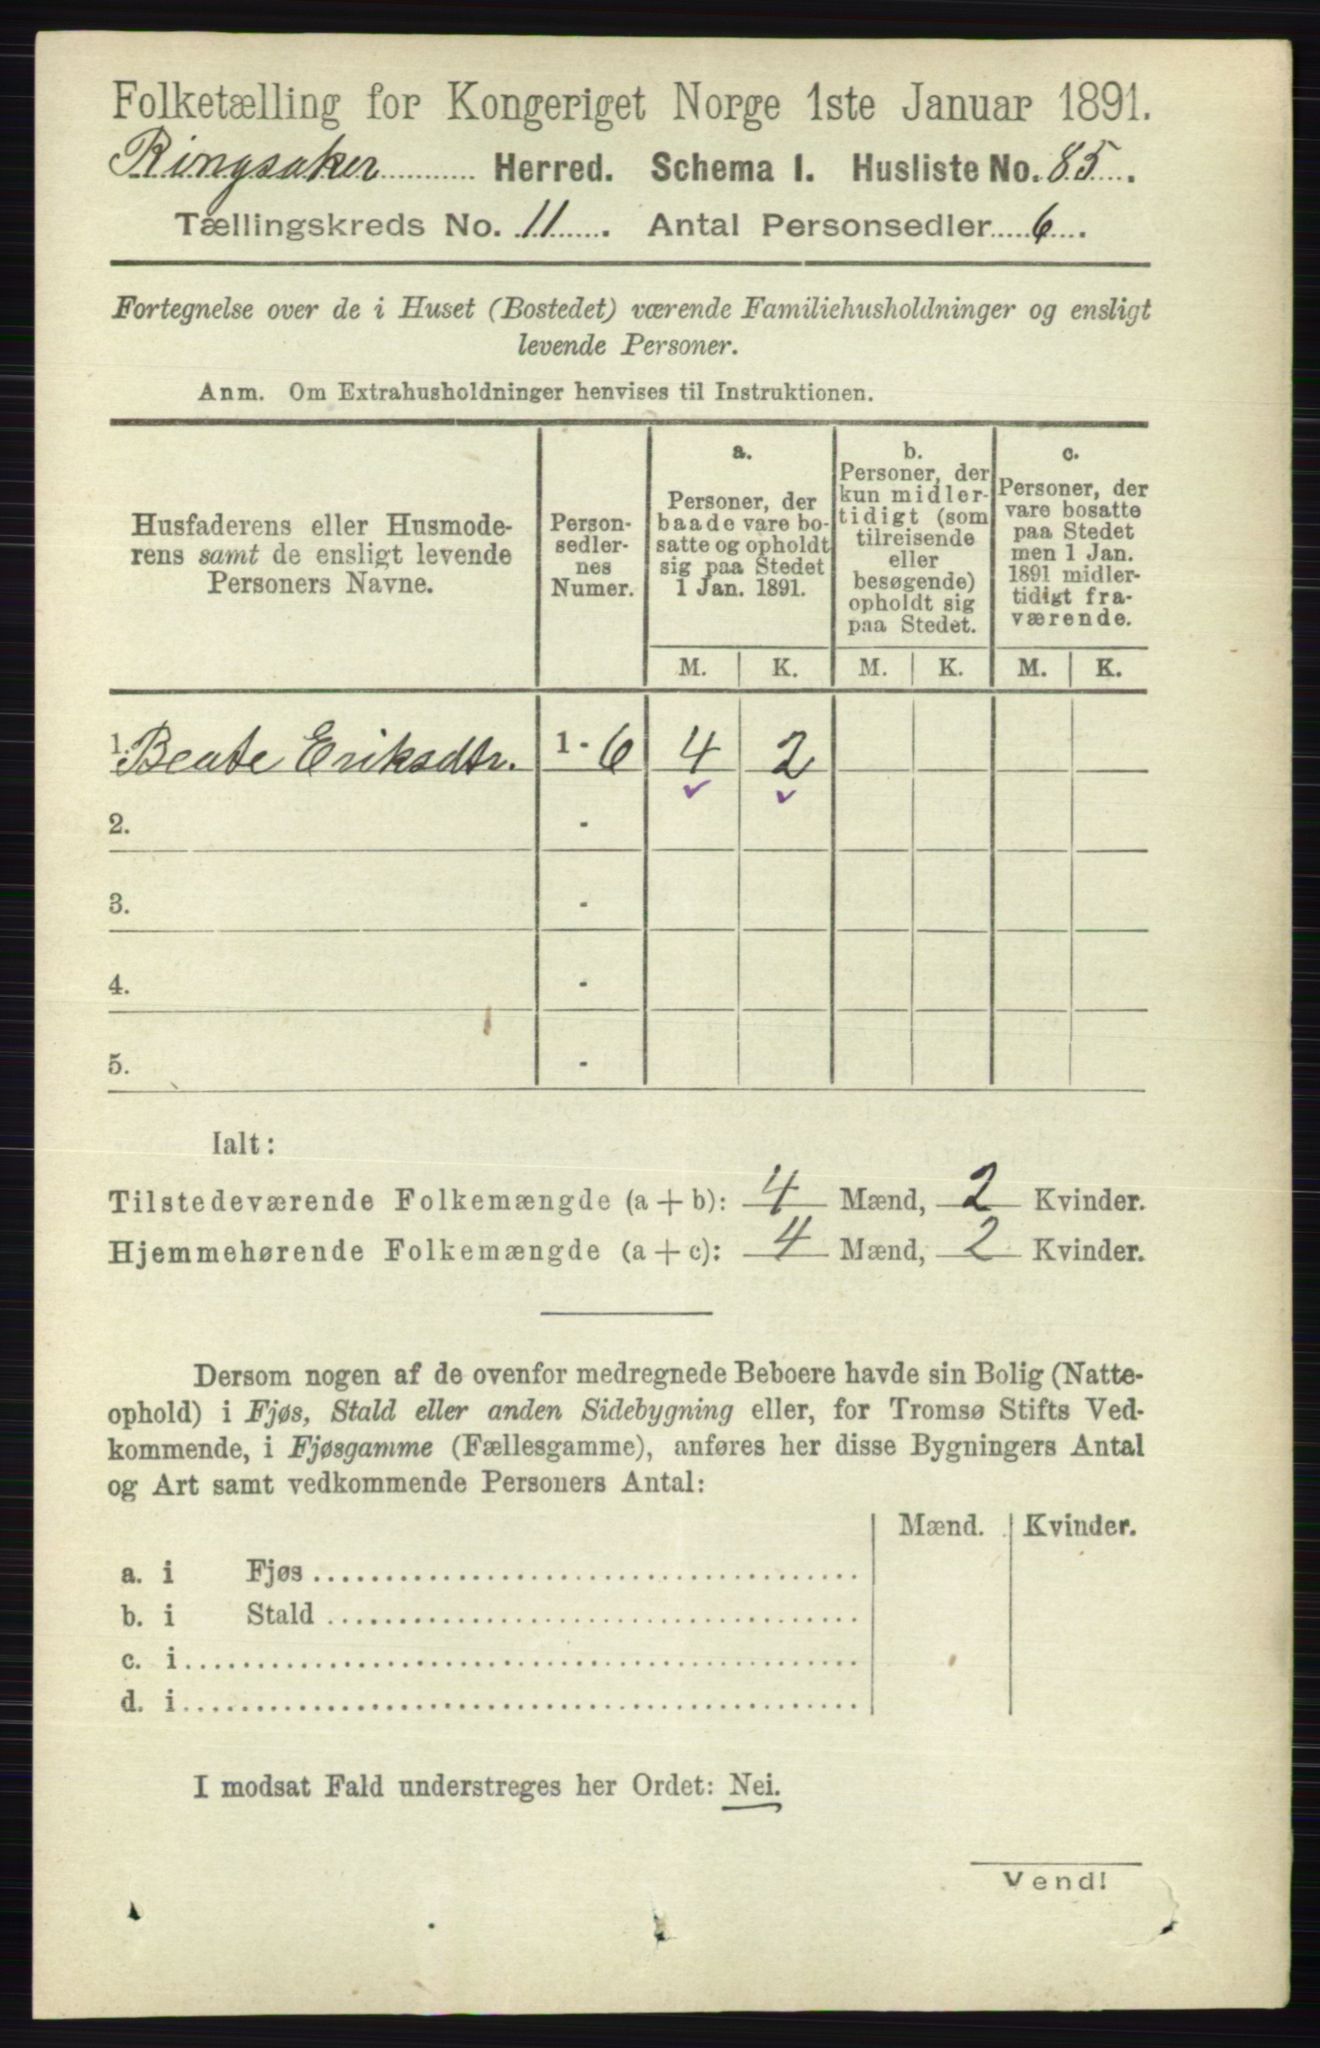 Folketælling for Kongeriget Norge 1ste Januar 1891.
Ringsaker Herred. Schema I. Husliste No. 85.
Tællingskreds No. 11. Antal Personsedler 6.
Fortegnelse over de i Huset (Bostedet) værende Familiehusholdninger og ensligt
levende Personer.
Anm. Om Extrahusholdninger henvises til Instruktionen.
Husfaderens eller Husmode-
rens samt de ensligt levende
Personers Navne.
Person-
sedler-
nes
Numer.
a.
Personer, der
baade vare bo-
satte og opholdt
sig paa Stedet
1 Jan. 1891.
b.
Personer, der
kun midler-
tidigt (som
tilreisende
eller
besøgende)
opholdt sig
paa Stedet.
c.
Personer, der
vare bosatte
paa Stedet
men 1 Jan.
1891 midler-
tidigt fra-
værende.
M. K. M. K. M. K.
1. Beate Eriksdtr. 1 - 6 4 2
2. -
3. -
4. -
5. -
Ialt:
Tilstedeværende Folkemængde (a + b): 4 Mænd, 2 Kvinder.
Hjemmehørende Folkemængde (a + c): 4 Mænd, 2 Kvinder.
Dersom nogen af de ovenfor medregnede Beboere havde sin Bolig (Natte-
ophold) i Fjøs, Stald eller anden Sidebygning eller, for Tromsø Stifts Ved-
kommende, i Fjøsgamme (Fællesgamme), anføres her disse Bygningers Antal
og Art samt vedkommende Personers Antal:
Mænd. Kvinder.
a. i Fjøs
b. i Stald
c. i
d. i
I modsat Fald understreges her Ordet: Nei.
Vend!